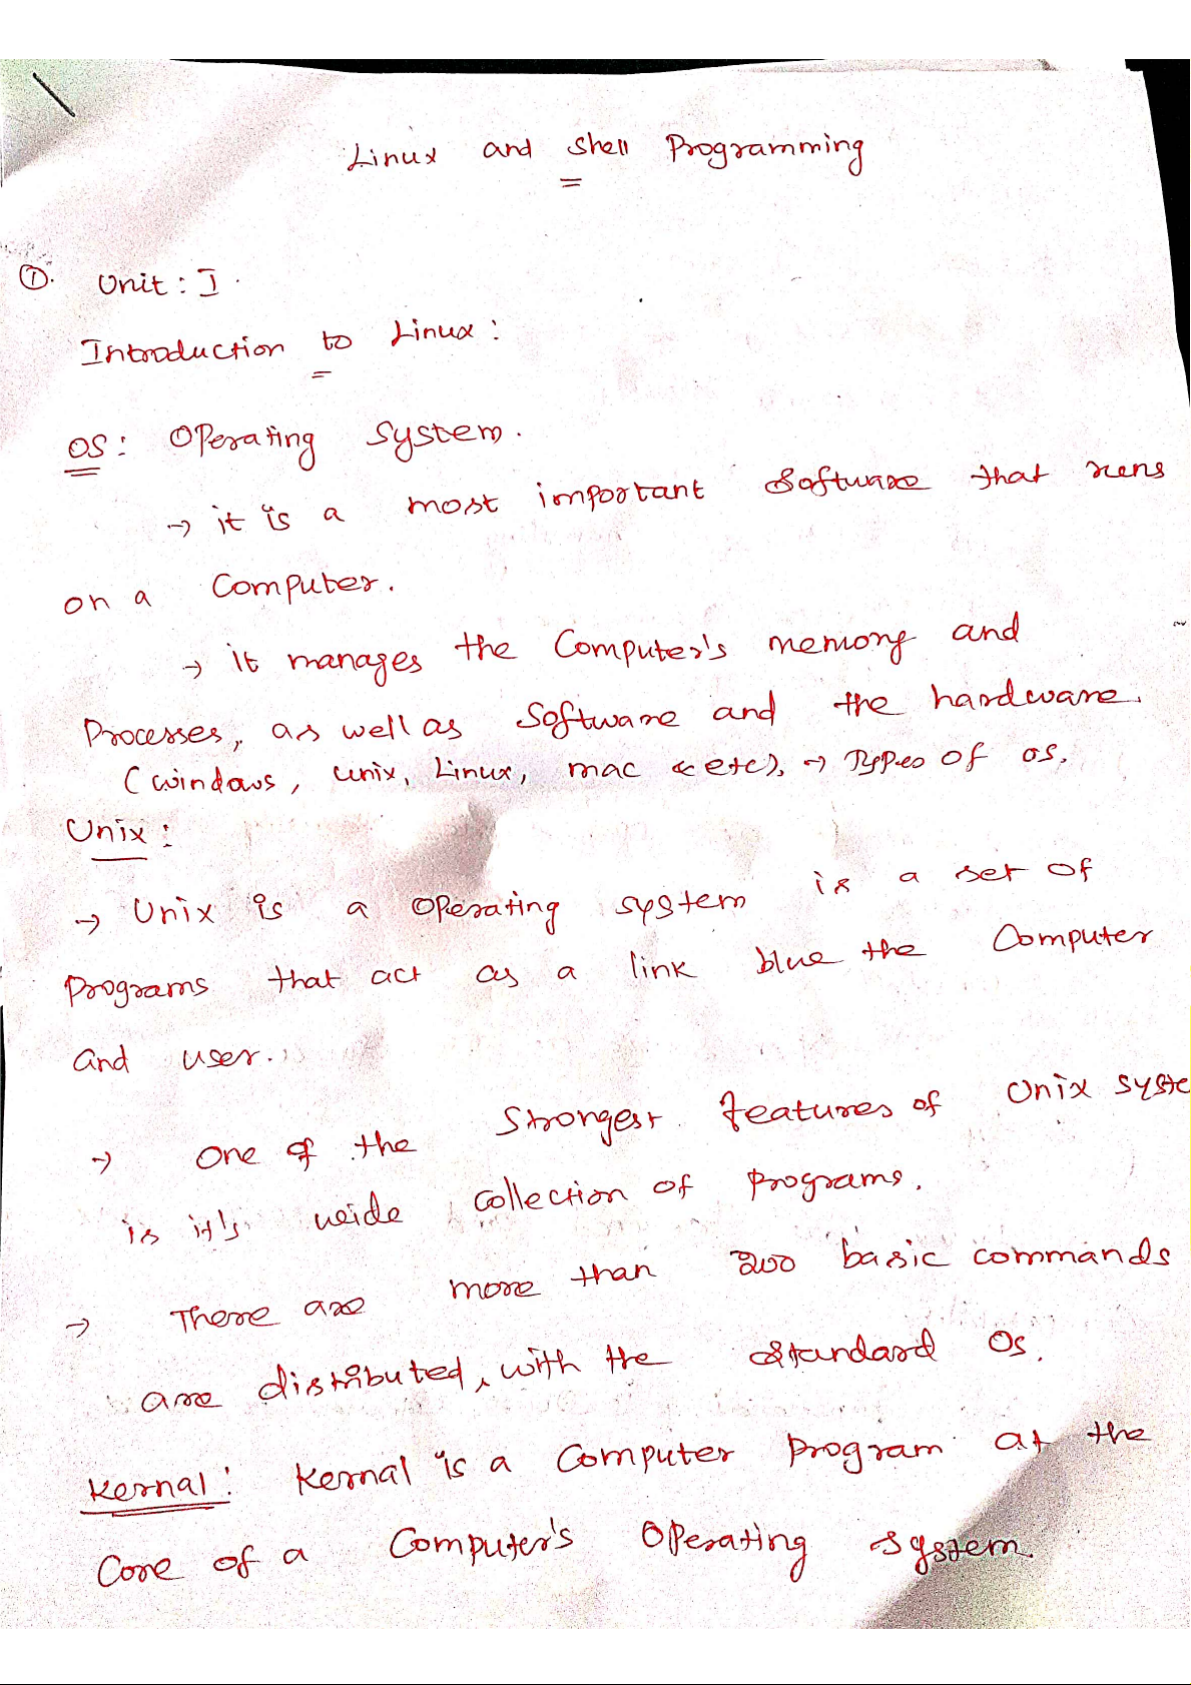 Linux and Shell Programming
①. Unit : I.
Introduction to Linux :
OS : Operating System.
→ it is a most important Software that runs
on a Computer.
→ it manages the Computer's memory and
Processes, as well as Software and the hardware.
(windows, unix, Linux, mac & etc). → Types of OS.
Unix :
→ Unix is a Operating system is a set of
Programs that act as a link b/w the Computer
and user.
→ One of the Strongest features of Unix syste
is it's wide Collection of Programs.
→ There are more than 200 basic commands
are distributed, with the Standard Os.
Kernal : Kernal is a Computer Program at the
Core of a Computer's Operating System.